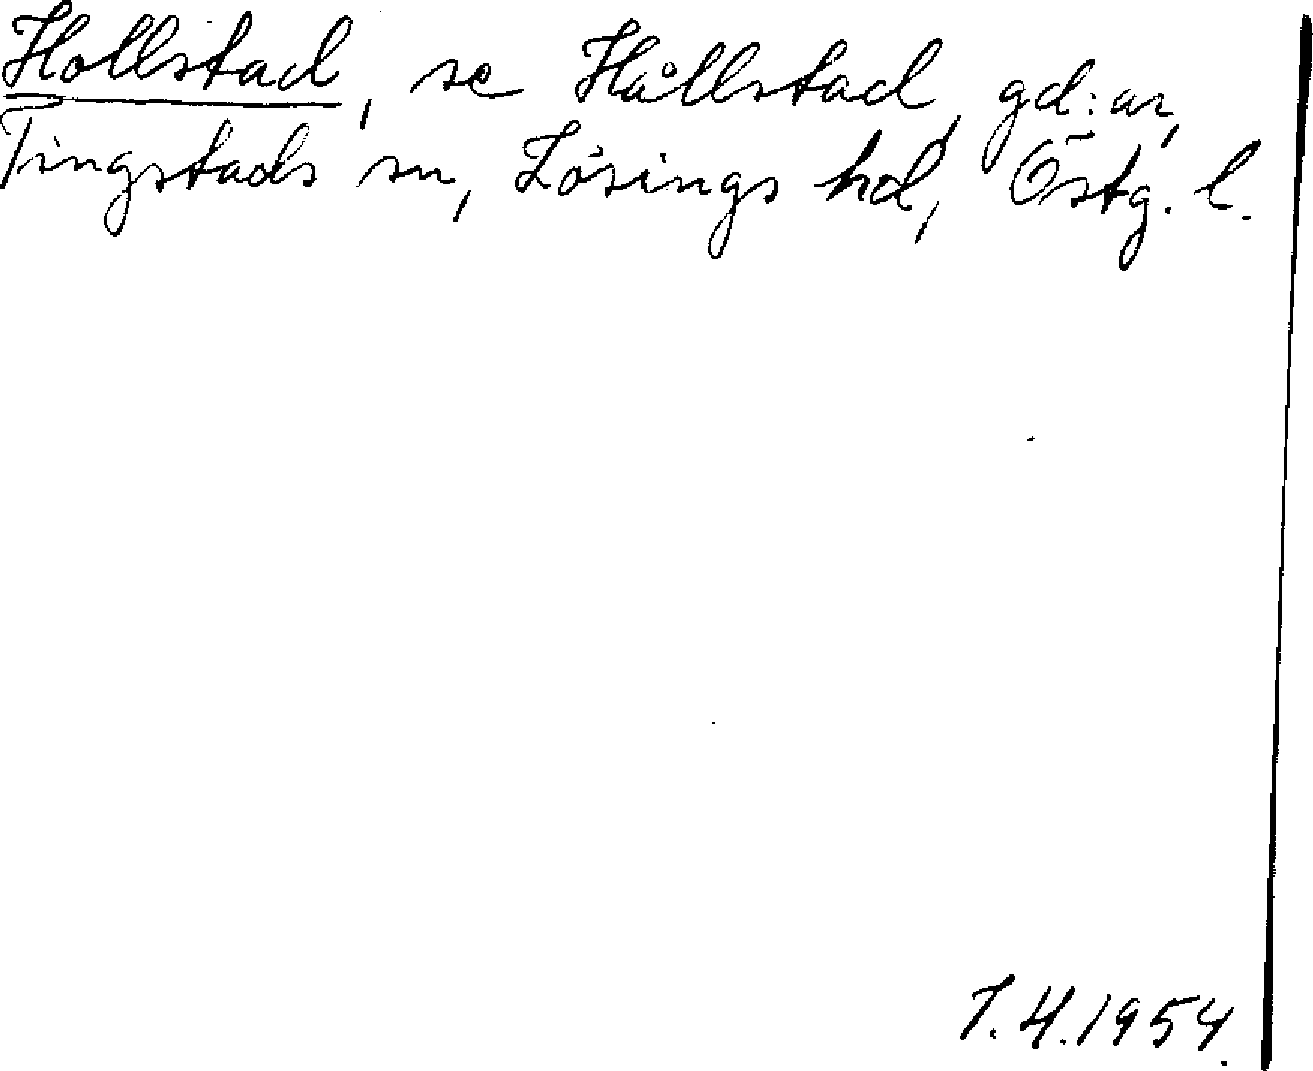 Hollstad, se Hållstad, gd:ar,
Tingstads sn, Lösings hd, Östg. l.
7.4.1954.